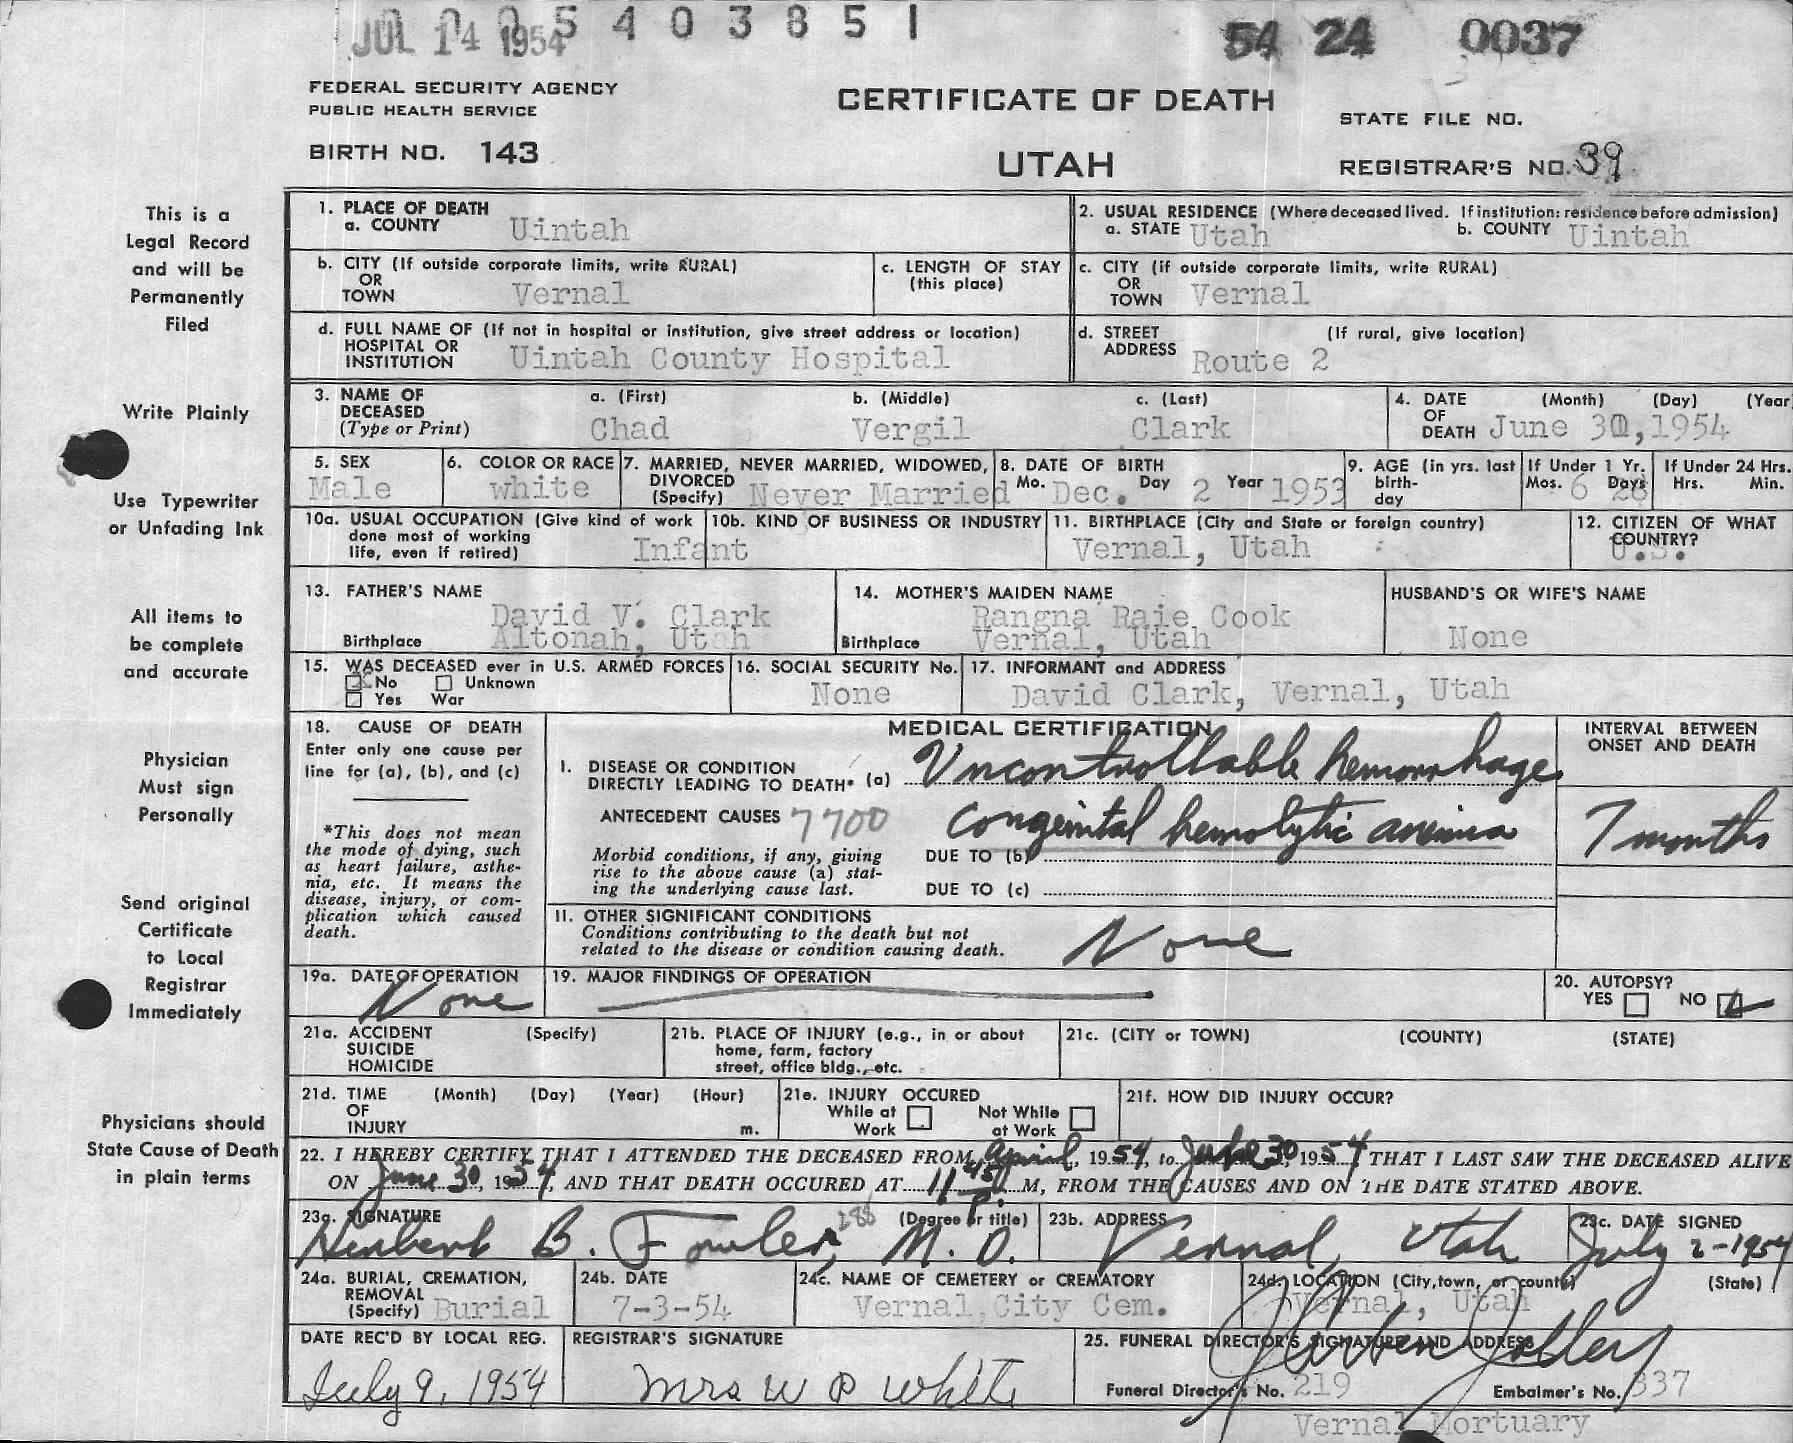 JUL 14 1954
5403851
54 24 0037
FEDERAL SECURITY AGENCY
PUBLIC HEALTH SERVICE
BIRTH NO. 143
CERTIFICATE OF DEATH
UTAH
STATE FILE NO.
REGISTRAR'S NO. 39
This is a
Legal Record
and will be
Permanently
Filed
Write Plainly
Use Typewriter
or Unfading Ink
All items to
be complete
and accurate
Physician
Must sign
Personally
Send original
Certificate
to Local
Registrar
Immediately
Physicians should
State Cause of Death
in plain terms
1. PLACE OF DEATH
a. COUNTY Uintah
2. USUAL RESIDENCE (Where deceased lived. If institution: residence before admission)
a. STATE Utah b. COUNTY Uintah
b. CITY (If outside corporate limits, write RURAL)
OR
TOWN Vernal
c. LENGTH OF STAY
(this place)
c. CITY (if outside corporate limits, write RURAL)
OR
TOWN Vernal
d. FULL NAME OF (If not in hospital or institution, give street address or location)
HOSPITAL OR
INSTITUTION Uintah County Hospital
d. STREET (If rural, give location)
ADDRESS Route 2
3. NAME OF DECEASED
(Type or Print)
a. (First) b. (Middle) c. (Last)
Chad Vergil Clark
4. DATE (Month) (Day) (Year
OF
DEATH June 30,1954
5. SEX
Male
6. COLOR OR RACE
white
7. MARRIED, NEVER MARRIED, WIDOWED,
DIVORCED
(Specify) Never Married
8. DATE OF BIRTH
Mo. Dec. Day 2 Year 1953
9. AGE (in yrs. last
birth-
day
If Under 1 Yr.
Mos. 6 Days 28
If Under 24 Hrs.
Hrs. Min.
10a. USUAL OCCUPATION (Give kind of work
done most of working
life, even if retired) Infant
10b. KIND OF BUSINESS OR INDUSTRY
11. BIRTHPLACE (City and State or foreign country)
Vernal, Utah
12. CITIZEN OF WHAT
COUNTRY?
U.S.
13. FATHER'S NAME
David V. Clark
Birthplace Altonah, Utah
14. MOTHER'S MAIDEN NAME
Rangna Raie Cook
Birthplace Vernal, Utah
HUSBAND'S OR WIFE'S NAME
None
15. WAS DECEASED ever in U.S. ARMED FORCES
x No Unknown
Yes War
16. SOCIAL SECURITY No.
None
17. INFORMANT and ADDRESS
David Clark, Vernal, Utah
18. CAUSE OF DEATH
Enter only one cause per
line for (a), (b), and (c)
*This does not mean
the mode of dying, such
as heart failure, asthe-
nia, etc. It means the
disease, injury, or com-
plication which caused
death.
MEDICAL CERTIFICATION
I. DISEASE OR CONDITION
DIRECTLY LEADING TO DEATH* (a) Uncontrollable hemorrhage
ANTECEDENT CAUSES 7700
Morbid conditions, if any, giving
rise to the above cause (a) stat-
ing the underlying cause last.
DUE TO (b) Congenital hemolytic anemia
DUE TO (c)
INTERVAL BETWEEN
ONSET AND DEATH
7 months
II. OTHER SIGNIFICANT CONDITIONS
Conditions contributing to the death but not
related to the disease or condition causing death. None
19a. DATE OF OPERATION
None
19. MAJOR FINDINGS OF OPERATION
20. AUTOPSY?
YES NO
21a. ACCIDENT (Specify)
SUICIDE
HOMICIDE
21b. PLACE OF INJURY (e.g., in or about
home, farm, factory
street, office bldg., etc.
21c. (CITY or TOWN) (COUNTY) (STATE)
21d. TIME (Month) (Day) (Year) (Hour)
OF
INJURY m.
21e. INJURY OCCURED
While at Work Not While at Work
21f. HOW DID INJURY OCCUR?
22. I HEREBY CERTIFY THAT I ATTENDED THE DECEASED FROM April, 1954, to June 30, 1954 THAT I LAST SAW THE DECEASED ALIVE
ON June 30, 1954, AND THAT DEATH OCCURED AT 11 45 P. M, FROM THE CAUSES AND ON THE DATE STATED ABOVE.
23a. SIGNATURE (Degree or title)
Herbert B. Fowler, M.D.
23b. ADDRESS
Vernal, Utah
23c. DATE SIGNED
July 2-1954
24a. BURIAL, CREMATION,
REMOVAL
(Specify) Burial
24b. DATE
7-3-54
24c. NAME OF CEMETERY or CREMATORY
Vernal City Cem.
24d. LOCATION (City, town, or county) (State)
Vernal, Utah
DATE REC'D BY LOCAL REG.
July 9, 1954
REGISTRAR'S SIGNATURE
Mrs W P White
25. FUNERAL DIRECTOR'S SIGNATURE AND ADDRESS
Funeral Director's No. 219 Embalmer's No. 337
Vernal Mortuary